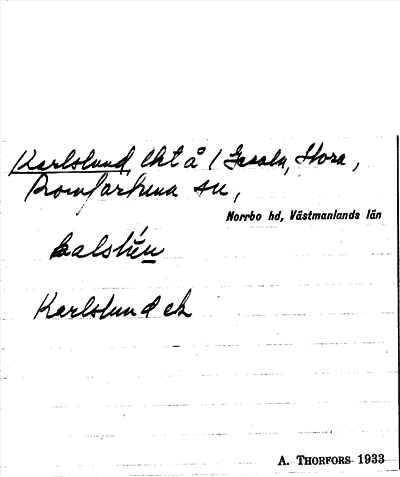 Karlslund, lht å 1 Gesala, Stora,
Romfartuna sn,
Norrbo hd, Västmanlands län
kalslún
Karlslund ek
A. THORFORS 1933